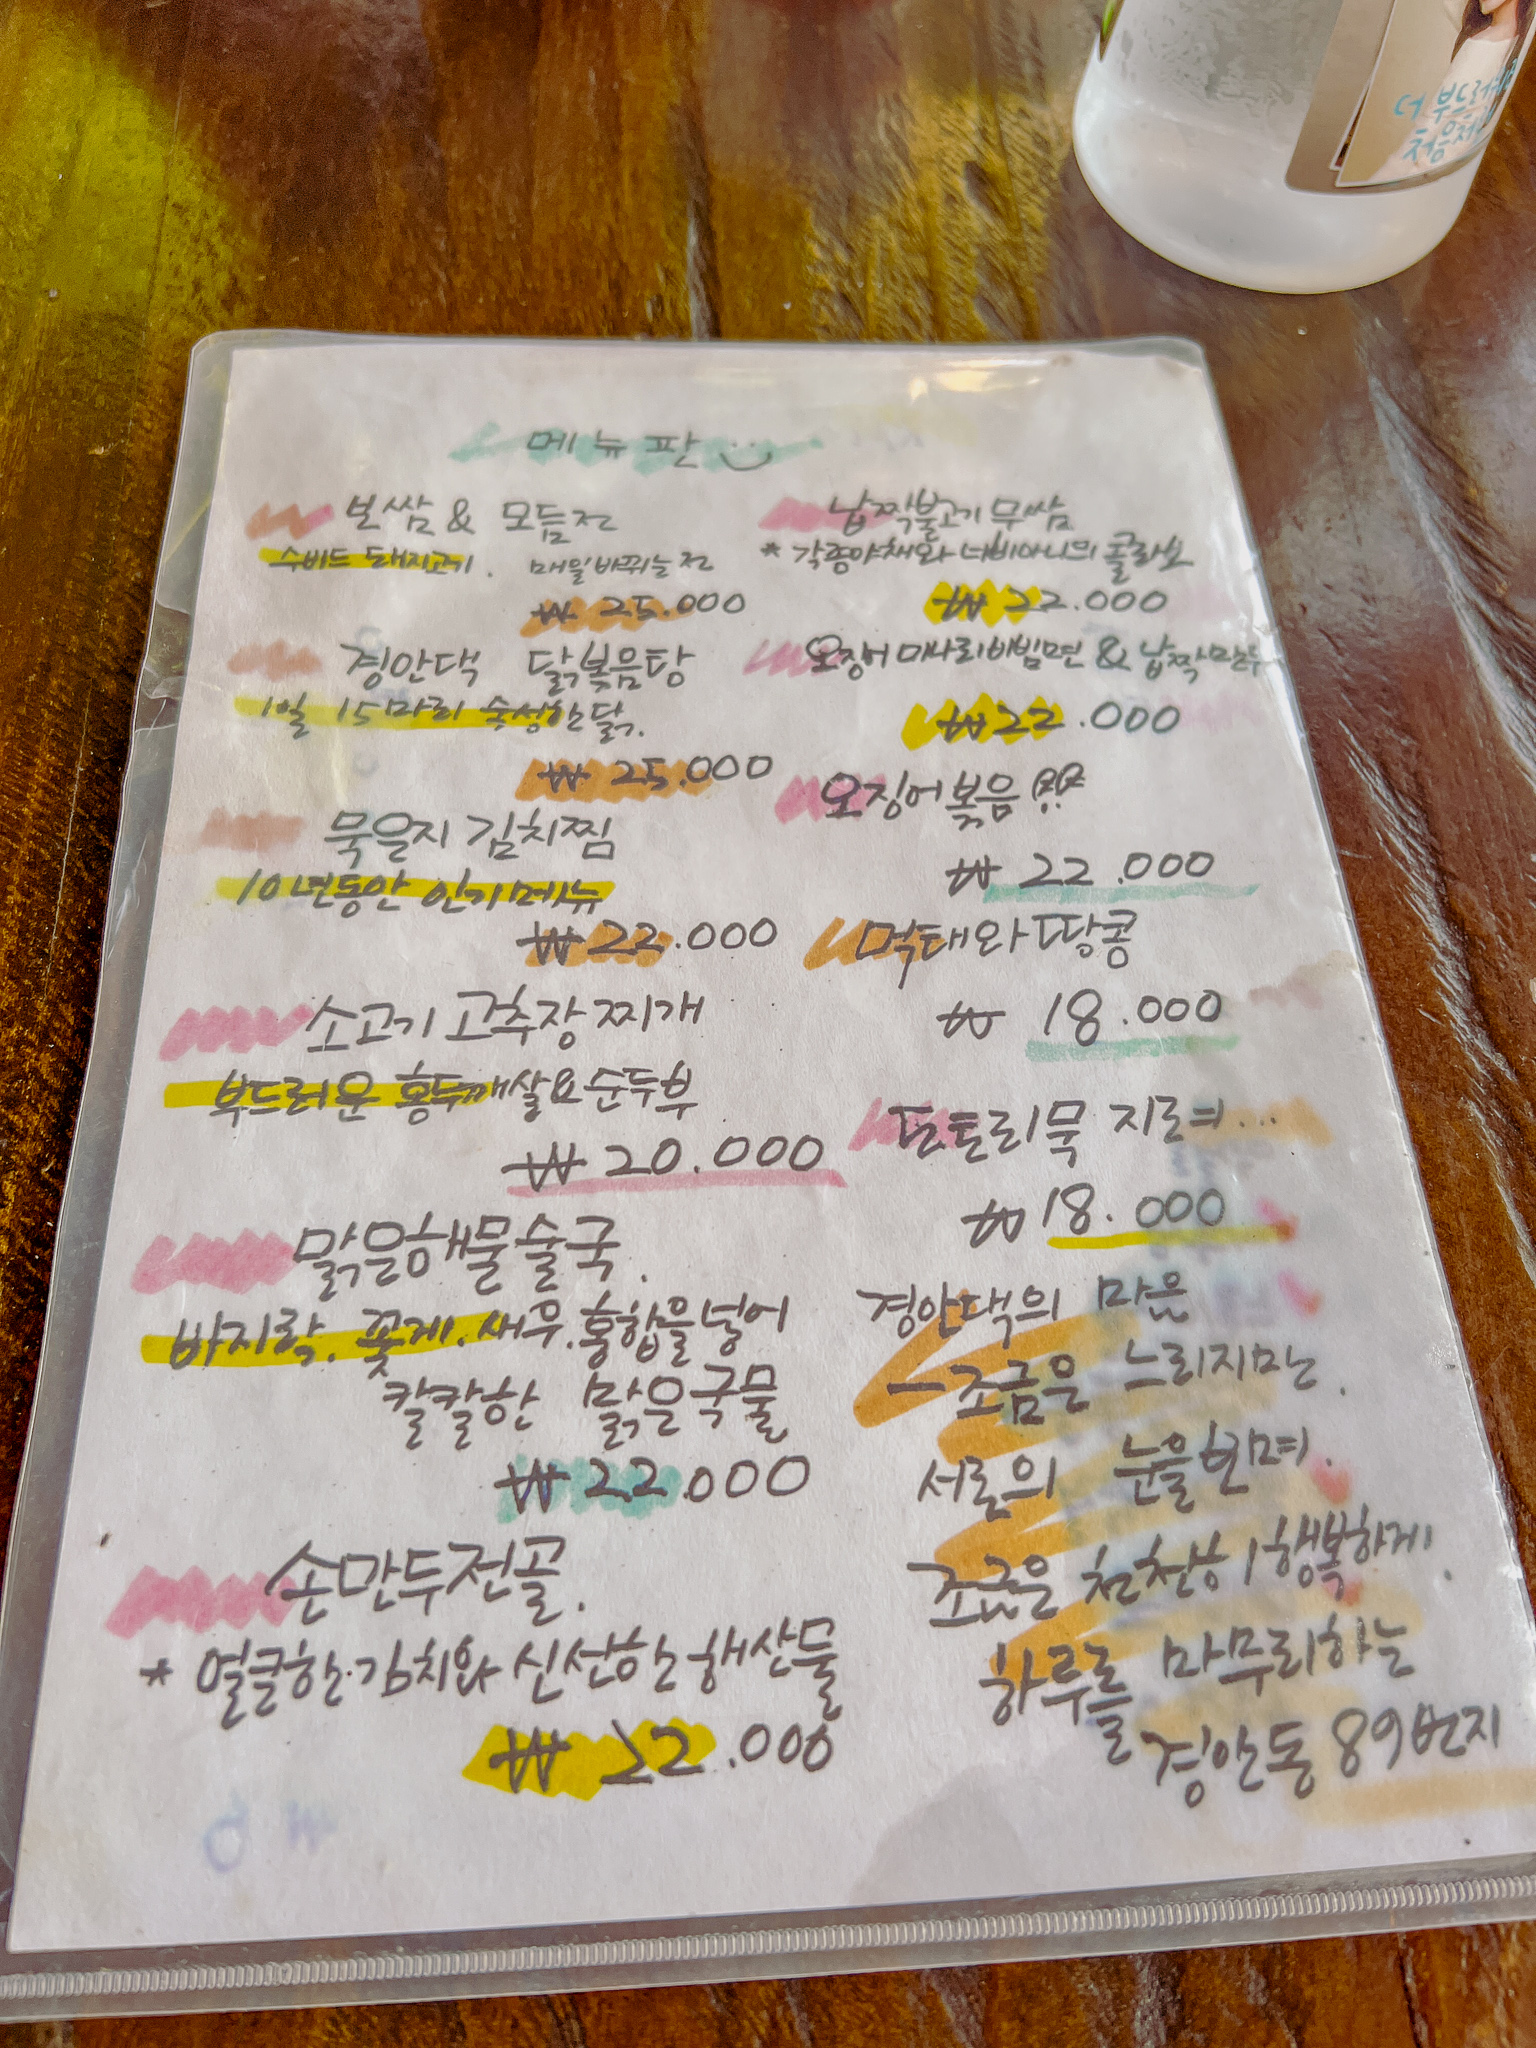 메뉴판
보쌈 & 모듬전
수비드 돼지고기. 매일 바뀌는 전
₩ 25.000
경안댁 닭볶음탕
1일 15마리 숙성한 닭.
₩ 25.000
묵은지 김치찜
10년동안 인기메뉴
₩ 22.000
소고기 고추장 찌개
부드러운 홍두깨살&순두부
₩ 20.000
맑은해물술국.
바지락. 꽃게. 새우. 홍합을 넣어
칼칼한 맑은국물
₩ 22.000
손만두전골.
* 얼큰한 김치와 신선한 해산물
₩ 22.000
납짝불고기 무쌈
* 각종야채와 너비아니의 콜라보
₩ 22.000
오징어 미나리비빔면 & 납짝만두
₩ 22.000
오징어볶음
₩ 22.000
먹태와 땅콩
₩ 18.000
도토리묵 지르미...
₩ 18.000
경안댁의 마음
- 조금은 느리지만.
서로의 눈을보며.
조금은 천천히 행복하게.
하루를 마무리하는
경안동 89번지
더 부드러
처음처